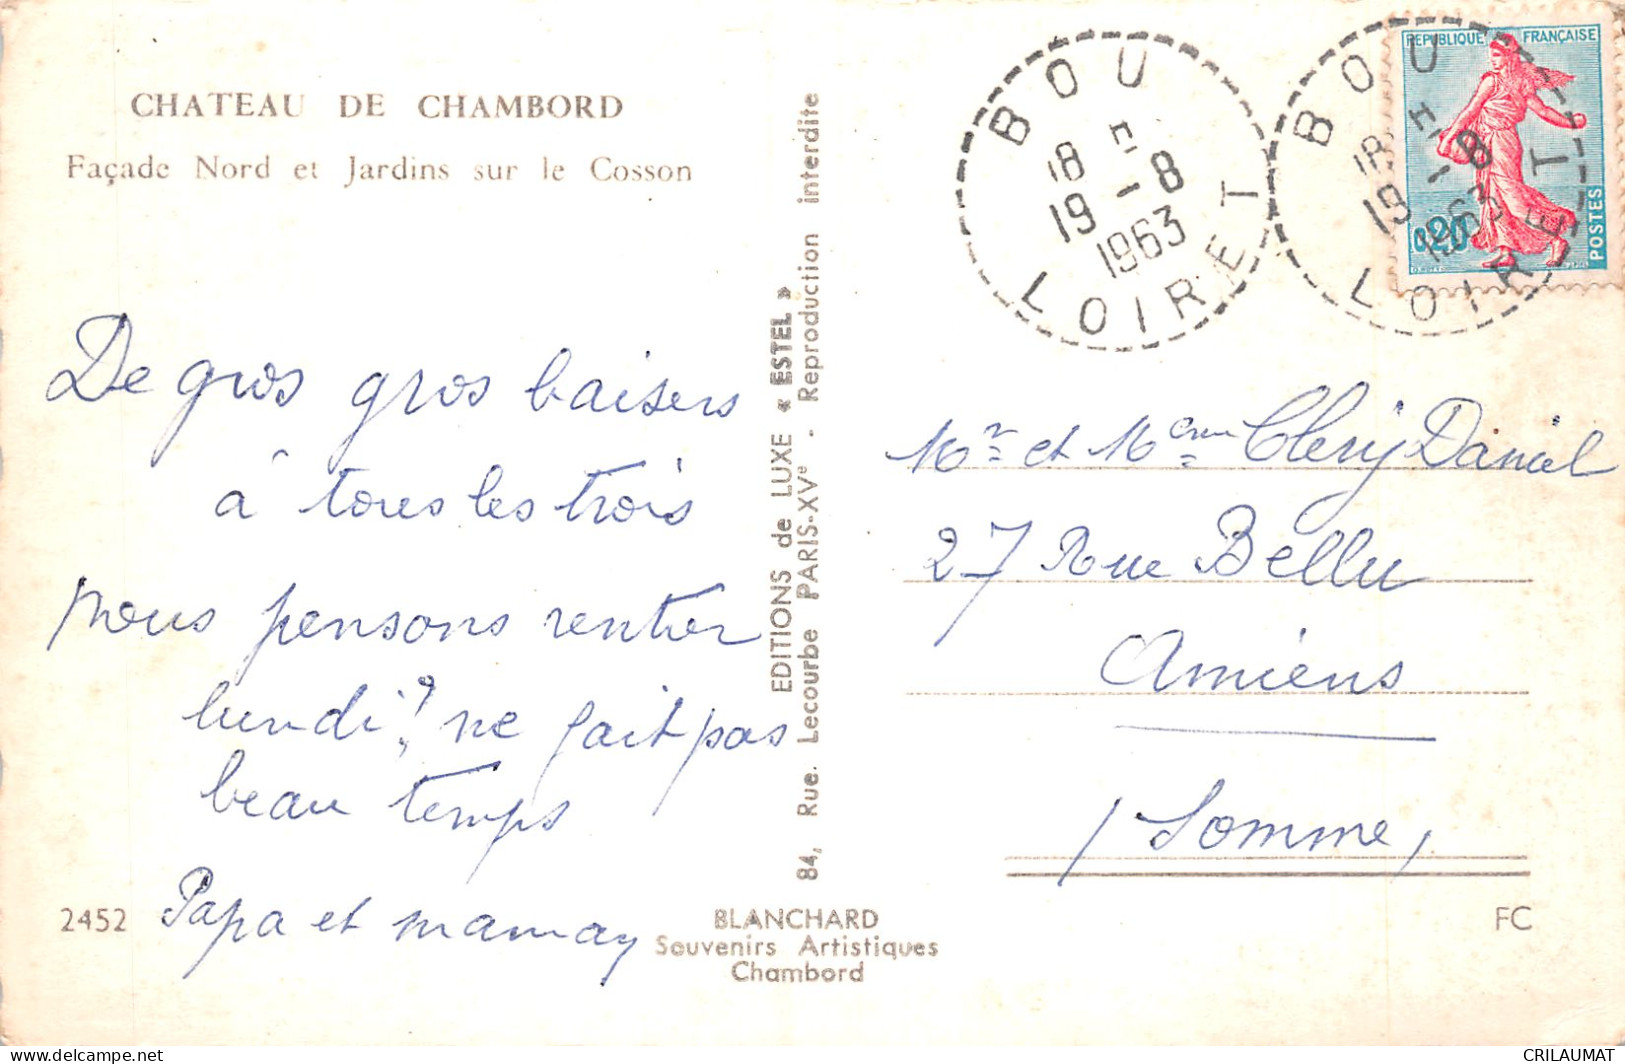 CHATEAU DE CHAMBORD
Façade Nord et Jardins sur le Cosson
De gros gros baisers
à tous les trois
nous pensons rentrer
lundi? ne fait pas
beau temps
Papa et maman
2452
EDITIONS de LUXE « ESTEL »
84, Rue. Lecourbe PARIS-XVe - Reproduction interdite
BLANCHARD
Souvenirs Artistiques
Chambord
BOU
18 H
19 - 8
1963
LOIRET
BOU
18 H
19 - 8
1963
LOIRET
REPUBLIQUE FRANÇAISE
0,20
POSTES
Mr et Mme Clery Daniel
27 Rue Bellu
Amiens
(Somme)
FC
CRILAUMAT